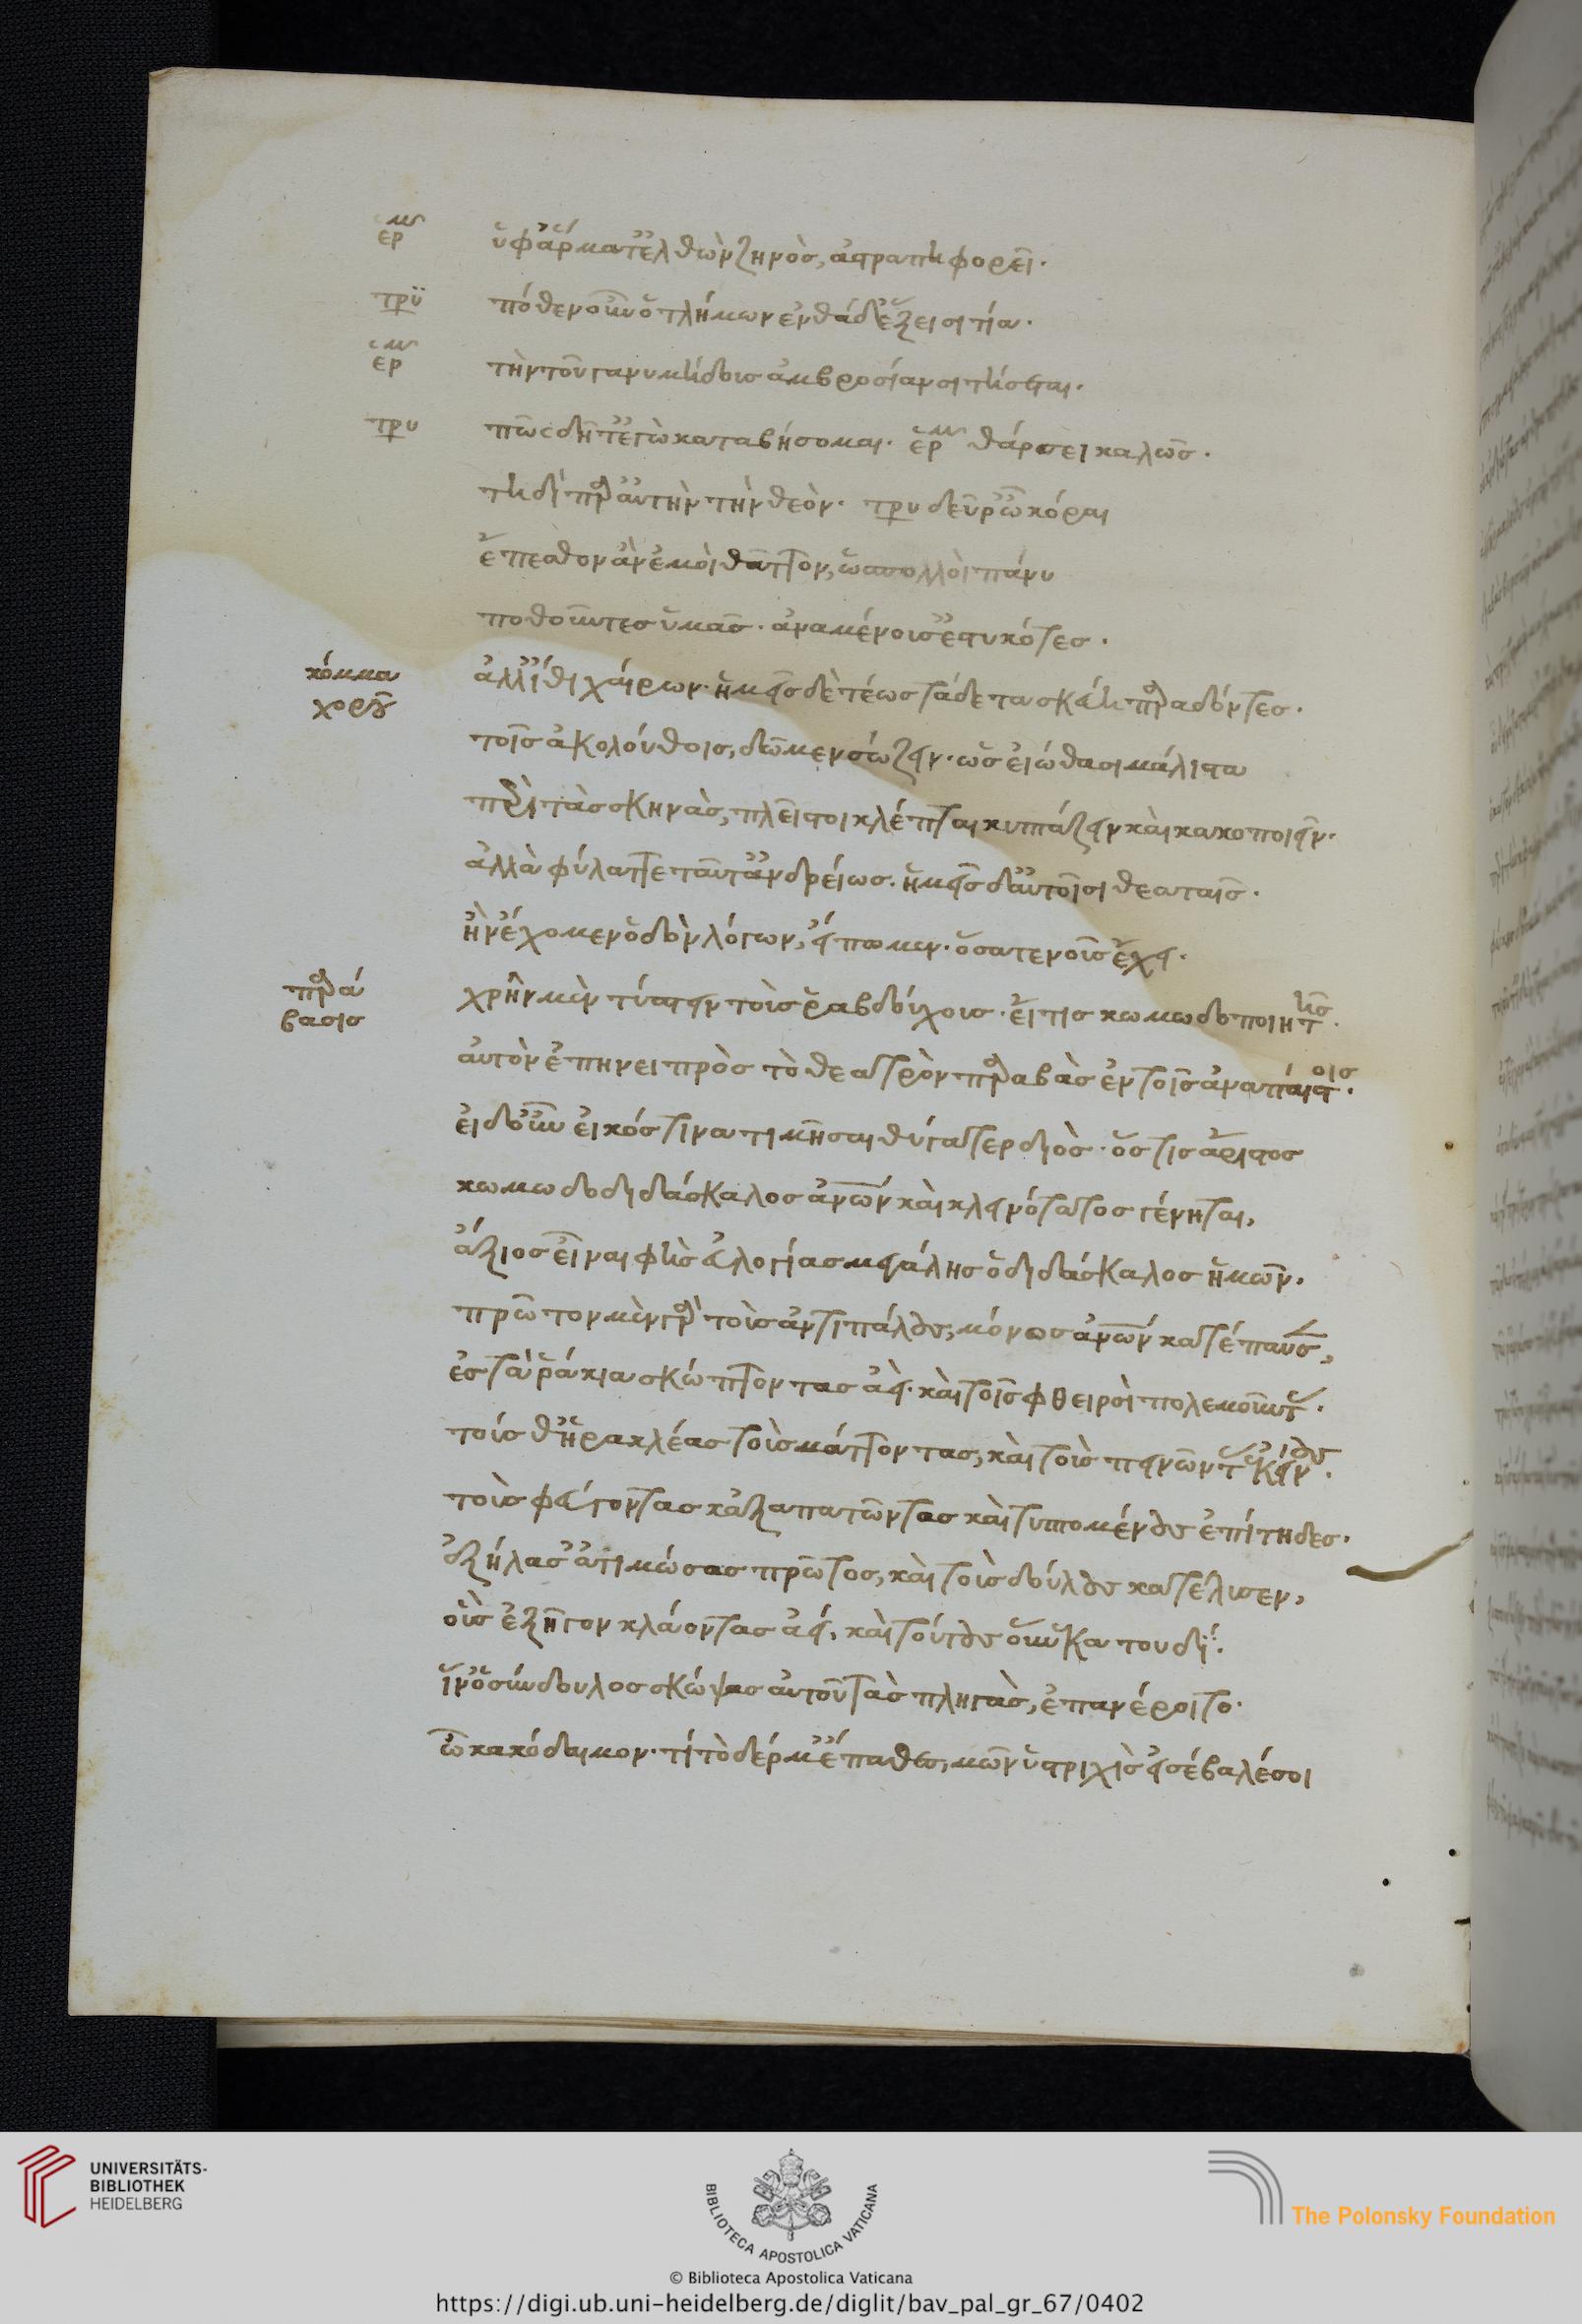 ερμ ὑφ' ἅρματ' ἐλθὼν ζηνὸς, ἀστραπηφορεῖ.
τρυ πόθεν οὖν ὁ τλήμων ἐνθάδ' ἕξει σιτία.
ερμ τὴν τοῦ γανυμήδους ἀμβροσίαν σιτήσεται.
τρυ πῶς δῆτ' ἐγὼ καταβήσομαι. ἑρμ θάρσει καλῶς.
τηδὶ παρ' αὐτὴν τὴν θεόν. τρυ δεῦρ' ὦ κόραι
ἕπεσθον ἂν ἐμοὶ θᾶττον, ὡς πολλοὶ πάνυ
ποθοῦντες ὑμᾶς. ἀναμένουσ' ἐστυκότες.
κόμμα χοροῦ ἀλλ' ἴθι χαίρων. ἡμεῖς δὲ τέως τάδε τα σκεύη παραδόντες.
τοῖς ἀκολούθοις, δῶμεν σώζειν. ὡς εἰώθασι μάλιστα
περὶ τὰς σκηνὰς, πλεῖστοι κλέπται κυπτάζειν καὶ κακοποιεῖν.
ἀλλὰ φύλαττε ταῦτ' ἀνδρείως. ἡμεῖς δ' αὐτοῖσι θεαταῖς.
ἣν ἔχομεν ὁδὸν λόγων, εἴπωμεν. ὅσα τε νοῦς ἔχει.
παράβασις χρῆν μὲν τύπτειν τοὺς ῥαβδούχους. εἴ τις κωμωδοποιητὴς.
αὑτὸν ἐπήνει πρὸς τὸ θέατρον παραβὰς ἐν τοῖς ἀναπαίστοις.
εἰ δ' οὖν εἰκός τινα τιμῆσαι θύγατερ διὸς. ὅστις ἄριστος
κωμωδοδιδάσκαλος ἀνῶν καὶ κλεινότατος γένηται,
ἄξιος εἶναι φησ' εὐλογίας μεγάλης ὁ διδάσκαλος ἡμῶν.
πρῶτον μὲν γὰρ τοὺς ἀντιπάλους, μόνος ἀνῶν κατέπαυσεν,
ἐς τὰ ῥάκια σκώπτοντας ἀεὶ. καὶ τοῖς φθειρσὶ πολεμοῦντας.
τούς θ' ἡρακλέας τοὺς μάττοντας, καὶ τοὺς πεινῶντας ἐκείνους.
τοὺς φεύγοντας κἀξαπατῶντας καὶ τυπτομένους ἐπίτηδες.
ἐξήλασ' ἀτιμώσας πρῶτος, καὶ τοὺς δούλους κατέλυσεν,
οὓς ἐξῆγον κλάοντας ἀεί, καὶ τούτους οὕνεκα τουδί.
ἵν' ὁ σύνδουλος σκώψας αὐτοῦ τὰς πληγὰς, ἐπανέροιτο.
ὦ κακόδαιμον. τί τὸ δέρμ' ἔπαθες, μῶν ὑστριχὶς εἰσέβαλέ σοι
UNIVERSITÄTS-
BIBLIOTHEK
HEIDELBERG
BIBLIOTECA APOSTOLICA VATICANA
The Polonsky Foundation
© Biblioteca Apostolica Vaticana
https://digi.ub.uni-heidelberg.de/diglit/bav_pal_gr_67/0402